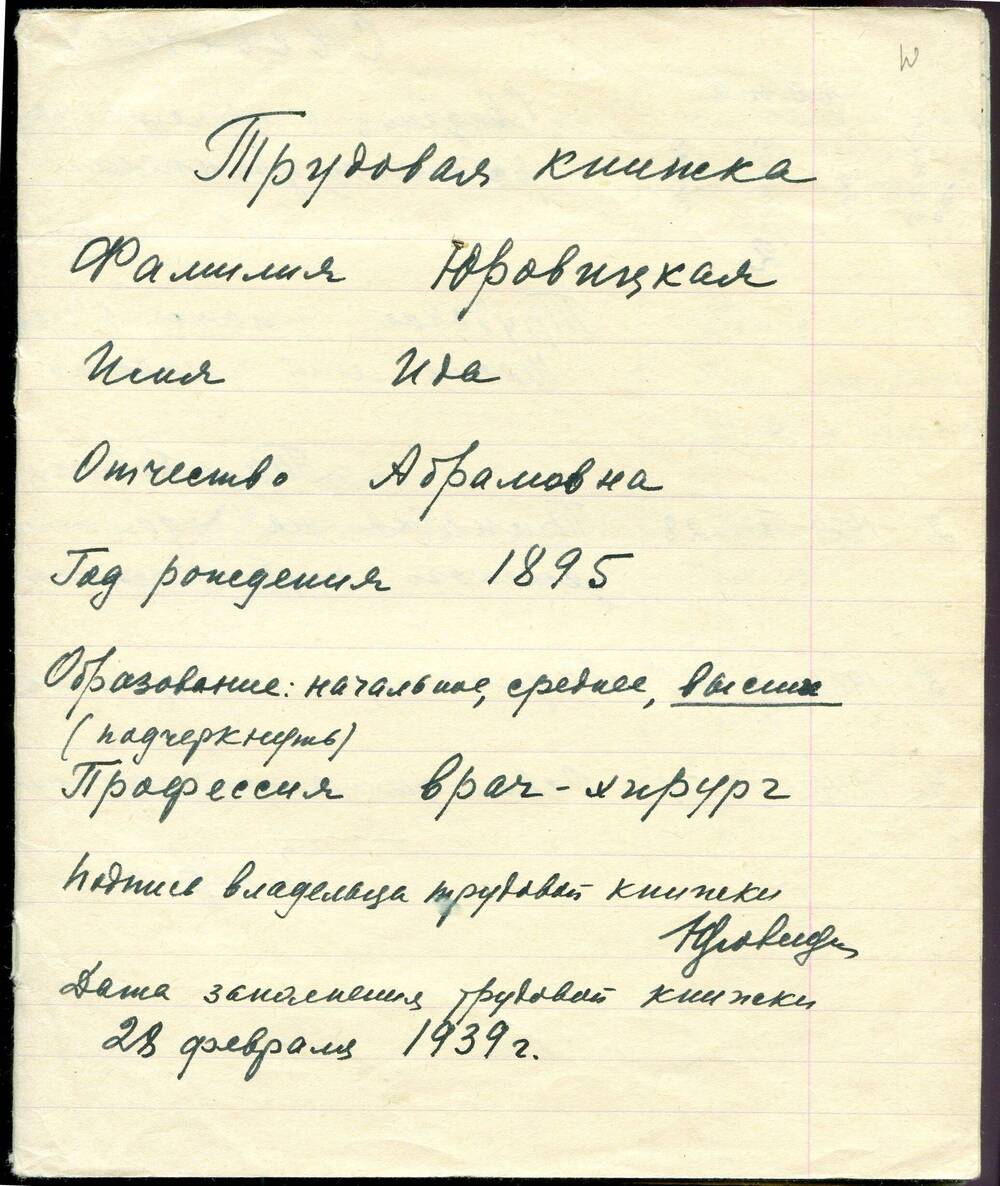 Трудовая книжка
Фамилия Юровицкая
Имя Ида
Отчество Абрамовна
Год рождения 1895
Образование: начальное, среднее, высшее
(подчеркнуть)
Профессия врач-хирург
Подпись владельца трудовой книжки
Дата заполнения трудовой книжки
28 февраля 1939 г.